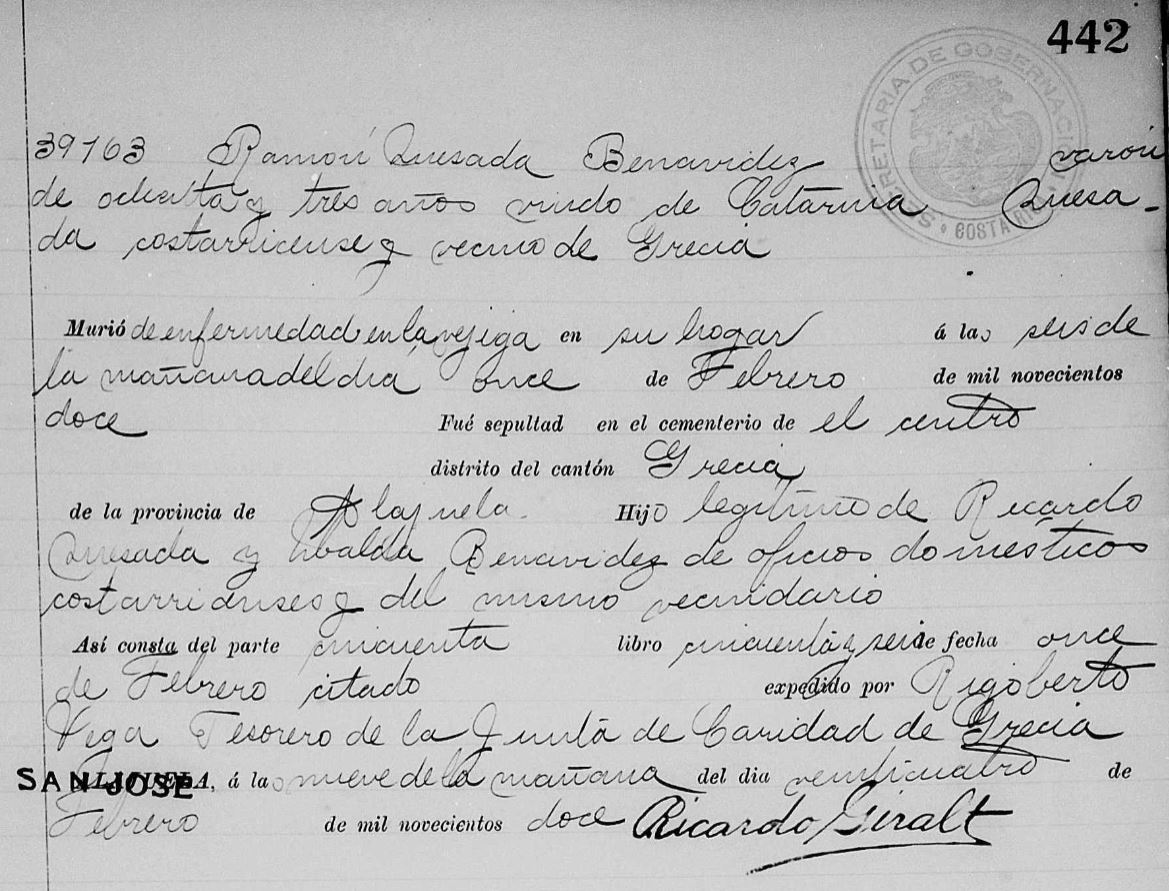 442
SECRETARIA DE GOBERNACION
COSTA RICA
39163 Ramón Quesada Benavidez varón
de ochenta y tres años viudo de Catarina Quesa-
da costarricense y vecino de Grecia
Murió de enfermedad en la vejiga en su hogar á las seis de
la mañana del día once de Febrero de mil novecientos
doce Fué sepultad en el cementerio de el centro
distrito del cantón Grecia
de la provincia de Alajuela. Hijo legítimo de Ricardo
Quesada y Ubalda Benavidez de oficios domésticos
costarricenses y del mismo vecindario
Así consta del parte cincuenta libro cincuenta y seis de fecha once
de Febrero citado expedido por Rigoberto
Vega Tesorero de la Junta de Caridad de Grecia
SAN JOSE, á las nueve de la mañana del dia veinticuatro de
Febrero de mil novecientos doce Ricardo Giralt